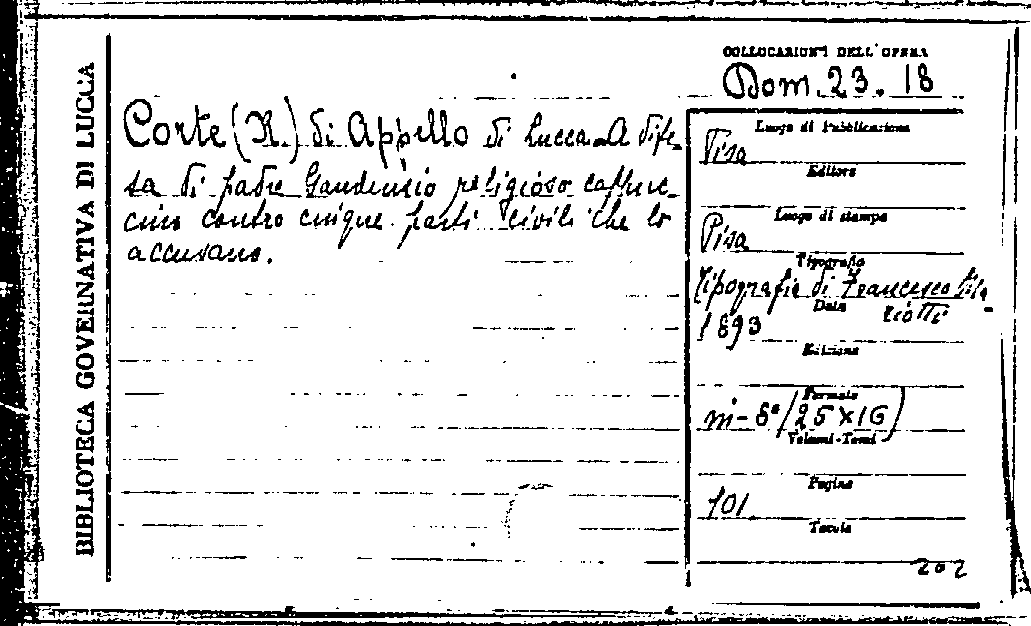 BIBLIOTECA GOVERNATIVA DI LUCCA
COLLOCAZIONI DELL'OPERA
Dom. 23. 18
Corte (R.) di Appello di Lucca. A dife-
sa di padre Gaudenzio religioso cappuc-
cino contro cinque parti civili che lo
accusano.
Luogo di Pubblicazione
Pisa
Editore
Luogo di stampa
Pisa
Tipografo
Tipografia di Francesco
Data
1893
Edizione
Formato
in-8° (25×16)
Volumi-Tomi
Pagine
101
Tavole
202